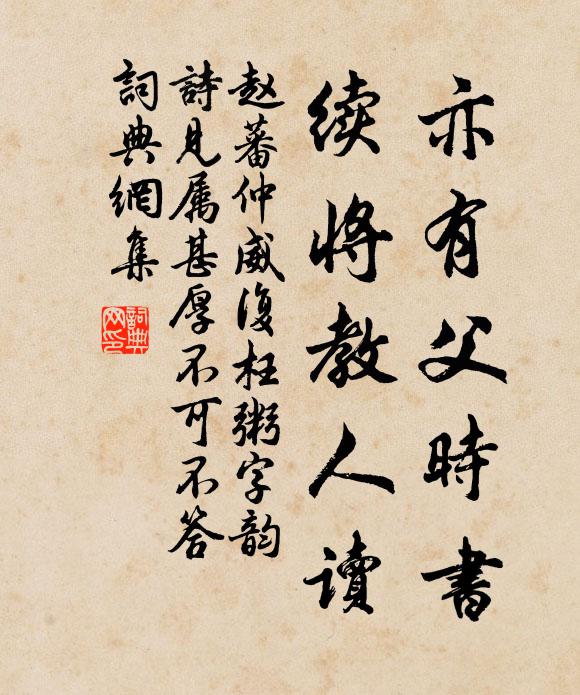 亦有父時書
續將教人讀
赵蕃仲威復枉粥字韵
詩見属甚厚不可不答
詞典網集
詞典
网印